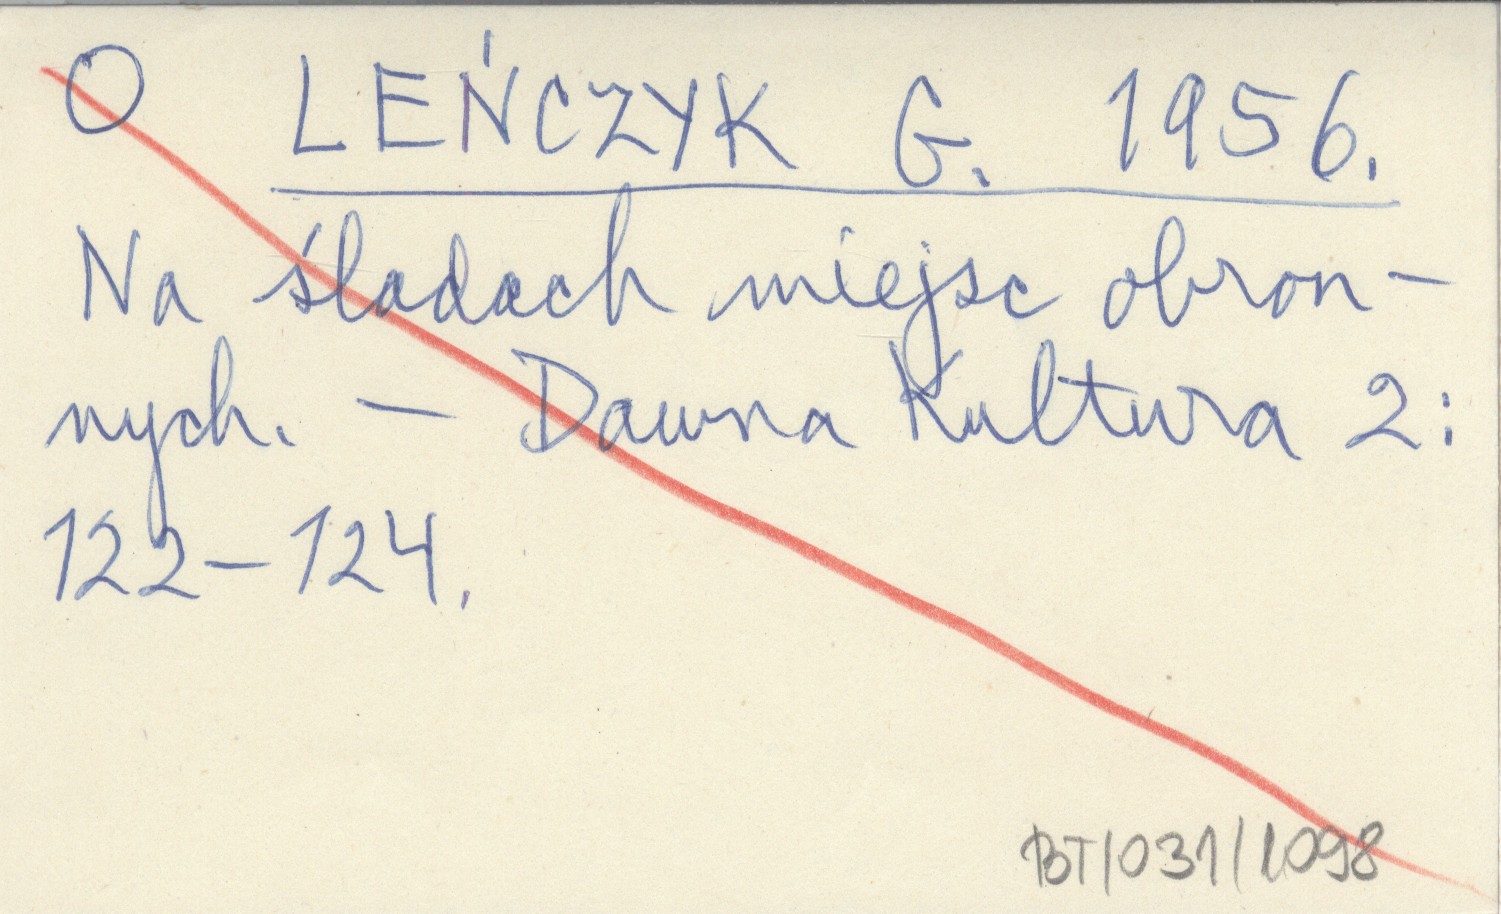 O LEŃCZYK G. 1956.
Na śladach miejsc obron-
nych. — Dawna Kultura 2:
122-124.
BT/031/1098